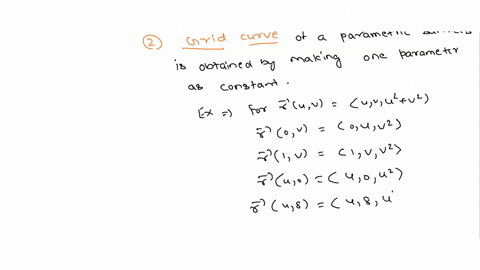 ② Grid curve of a parametric
is obtained by making one parameter
as constant.
Ex ⇒ for r⃗(u,v) = ⟨u,v,u²+v²⟩
r⃗(0,v) = ⟨0,u,v²⟩
r⃗(1,v) = ⟨1,v,v²⟩
r⃗(u,0) = ⟨u,0,u²⟩
r⃗(u,8) = ⟨u,8,u